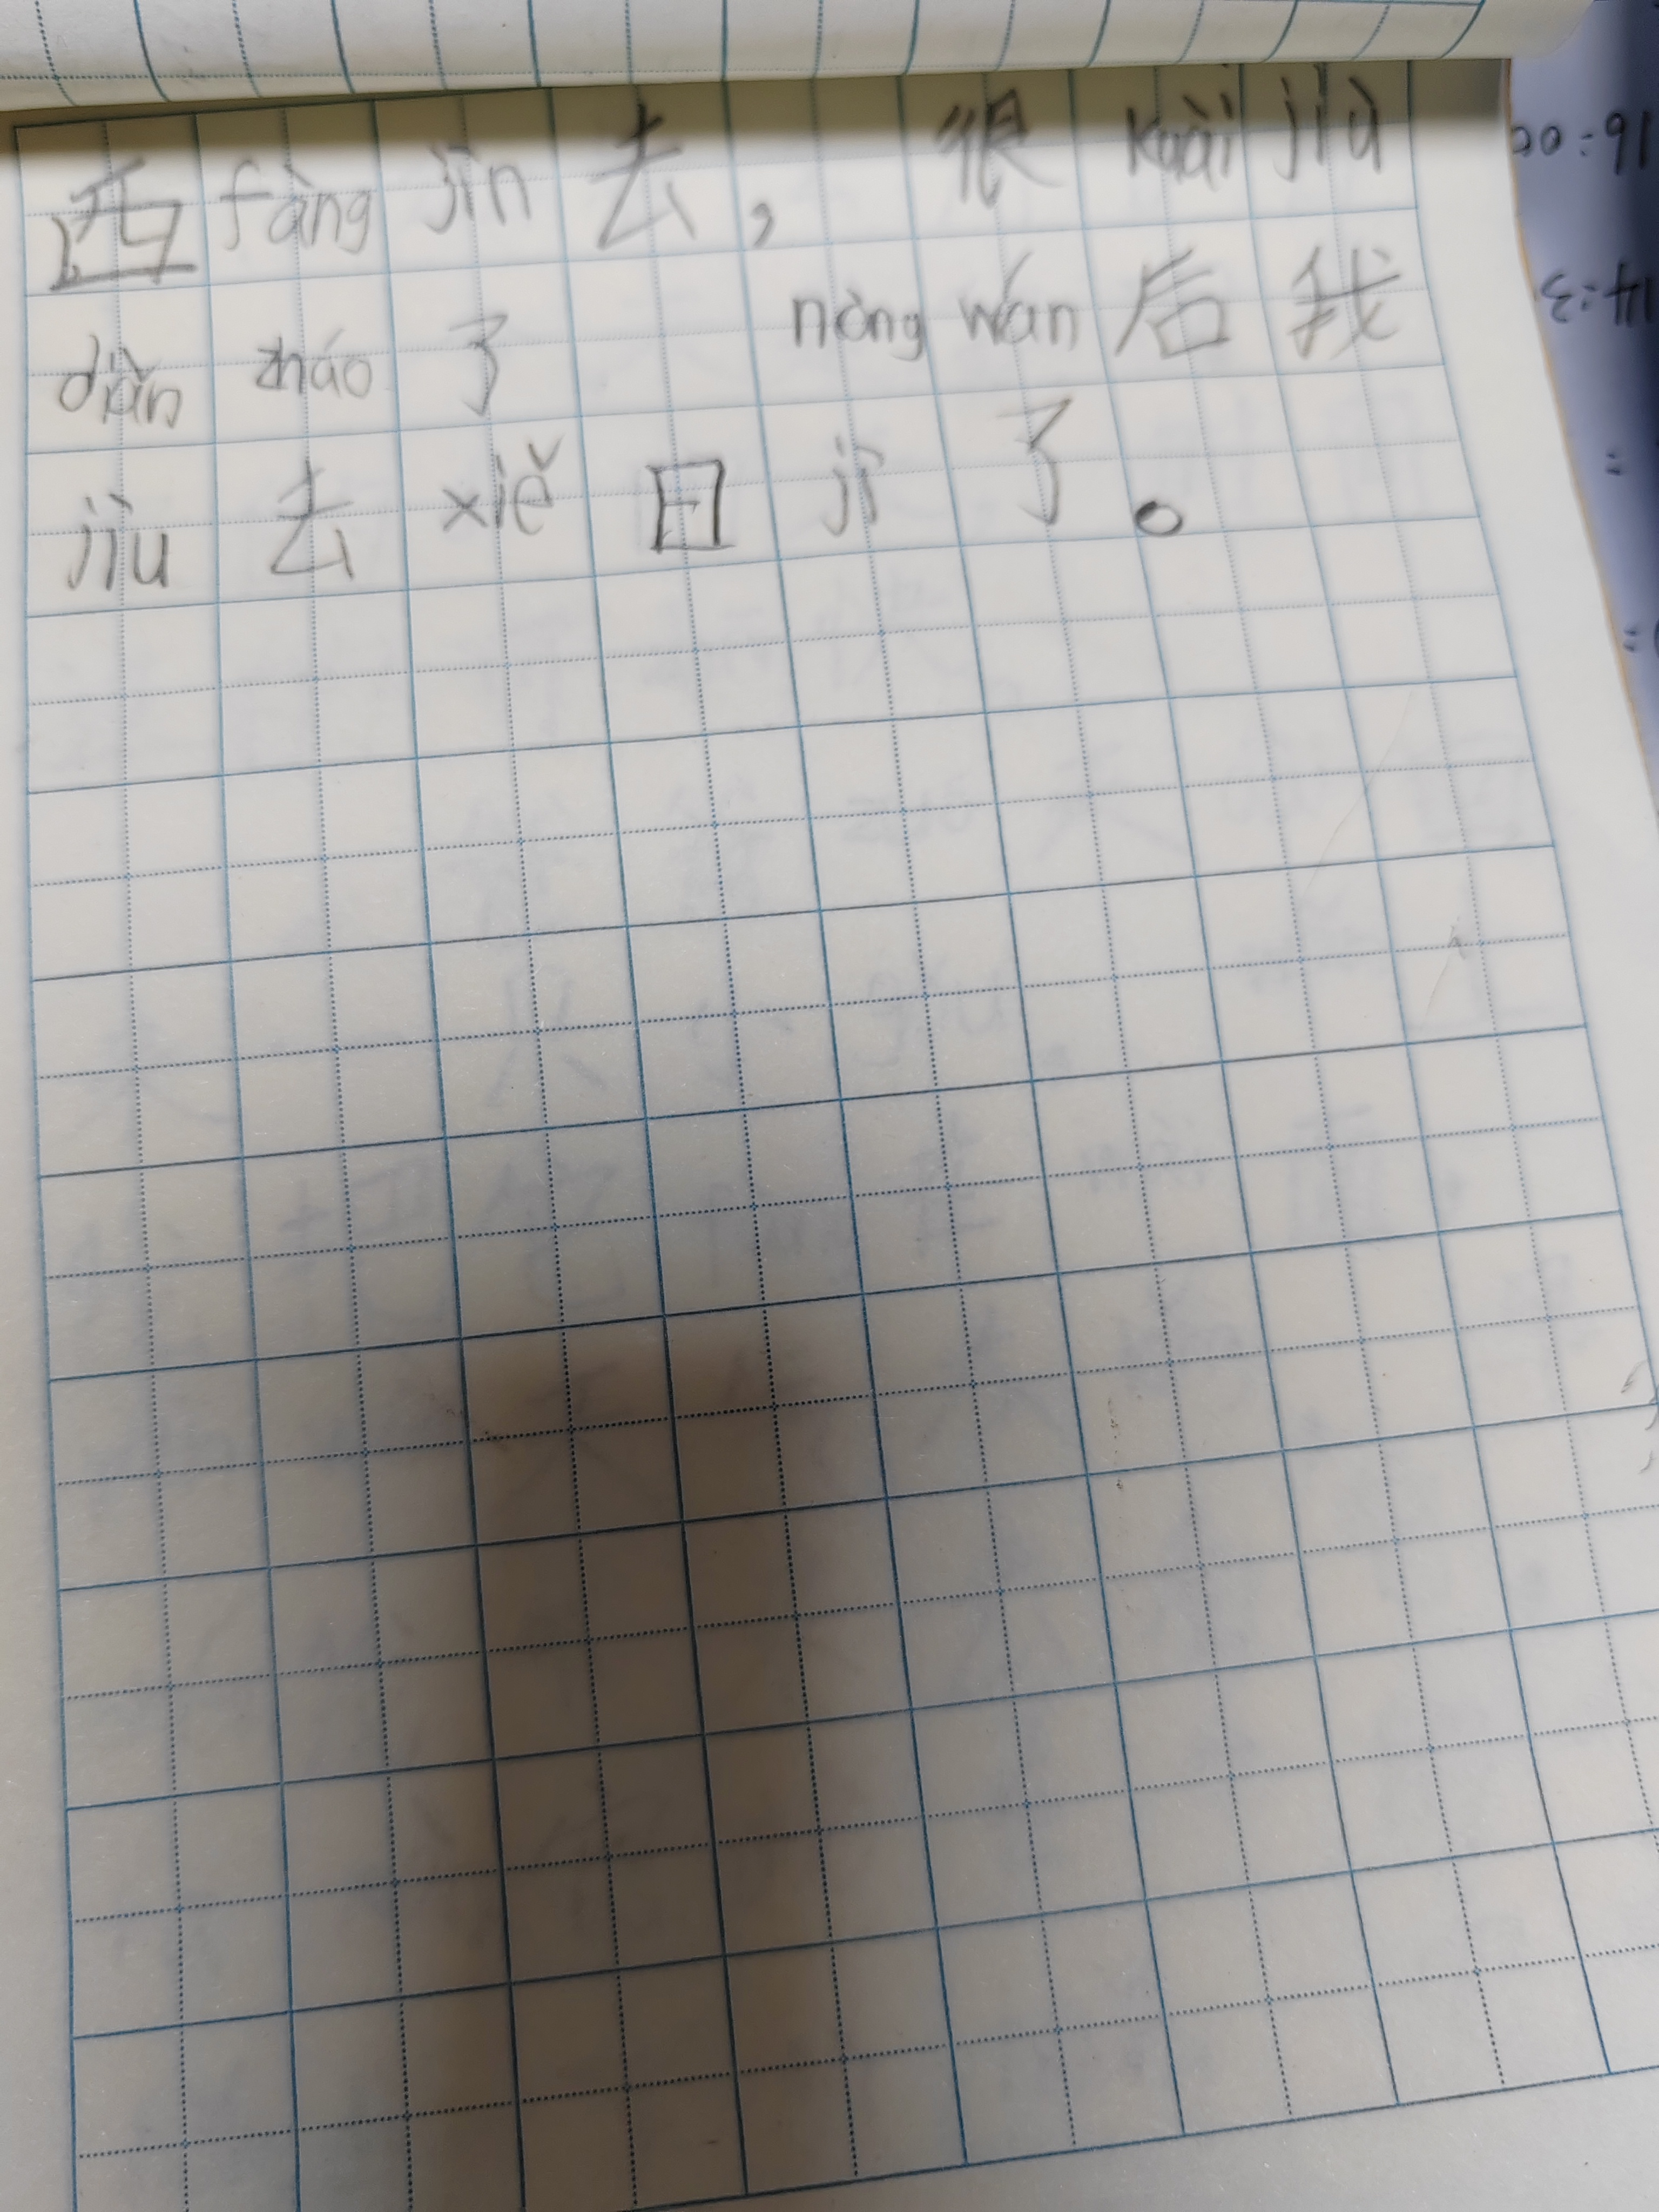 西 fàng jìn 去，很 kuài jiù
diǎn zháo 了 nòng wán 后我
jiù 去 xiě 日 jì 了。
16:00
14:3